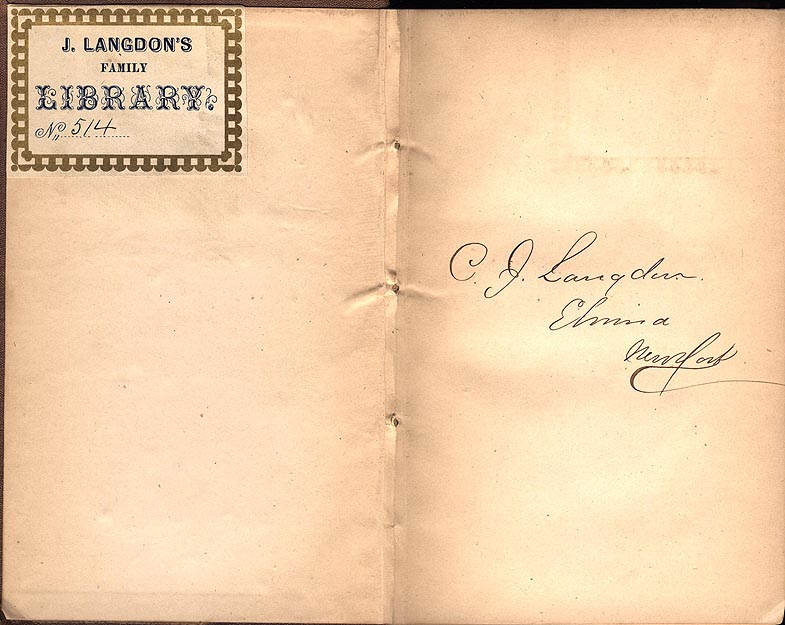 J. LANGDON'S
FAMILY
LIBRARY.
No. 514
C. J. Langdon.
Elmira
New York